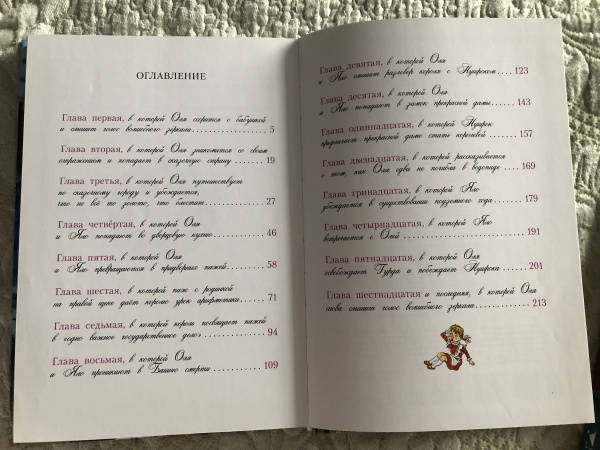 ОГЛАВЛЕНИЕ
Глава первая, в которой Оля ссорится с бабушкой
и слышит голос волшебного зеркала 5
Глава вторая, в которой Оля знакомится со своим
отражением и попадает в сказочную страну 19
Глава третья, в которой Оля путешествует
по сказочному городу и убеждается,
что не всё то золото, что блестит 27
Глава четвёртая, в которой Оля
и Яло попадают во дворцовую кухню 46
Глава пятая, в которой Оля
и Яло превращаются в придворных пажей 58
Глава шестая, в которой паж с родинкой
на правой щеке даёт королю урок арифметики 71
Глава седьмая, в которой король посвящает пажей
в одно важное государственное дело 94
Глава восьмая, в которой Оля
и Яло проникают в Башню смерти 109
Глава девятая, в которой Оля
и Яло слышат разговор короля с Нушроком 123
Глава десятая, в которой Оля
и Яло попадают в замок прекрасной дамы 143
Глава одиннадцатая, в которой Нушрок
предлагает прекрасной даме стать королевой 157
Глава двенадцатая, в которой рассказывается
о том, как Оля едва не погибла в водопаде 169
Глава тринадцатая, в которой Яло
убеждается в существовании подземного хода 179
Глава четырнадцатая, в которой Яло
встречается с Олей 191
Глава пятнадцатая, в которой Оля
освобождает Гурда и побеждает Нушрока 201
Глава шестнадцатая и последняя, в которой Оля
снова слышит голос волшебного зеркала 213